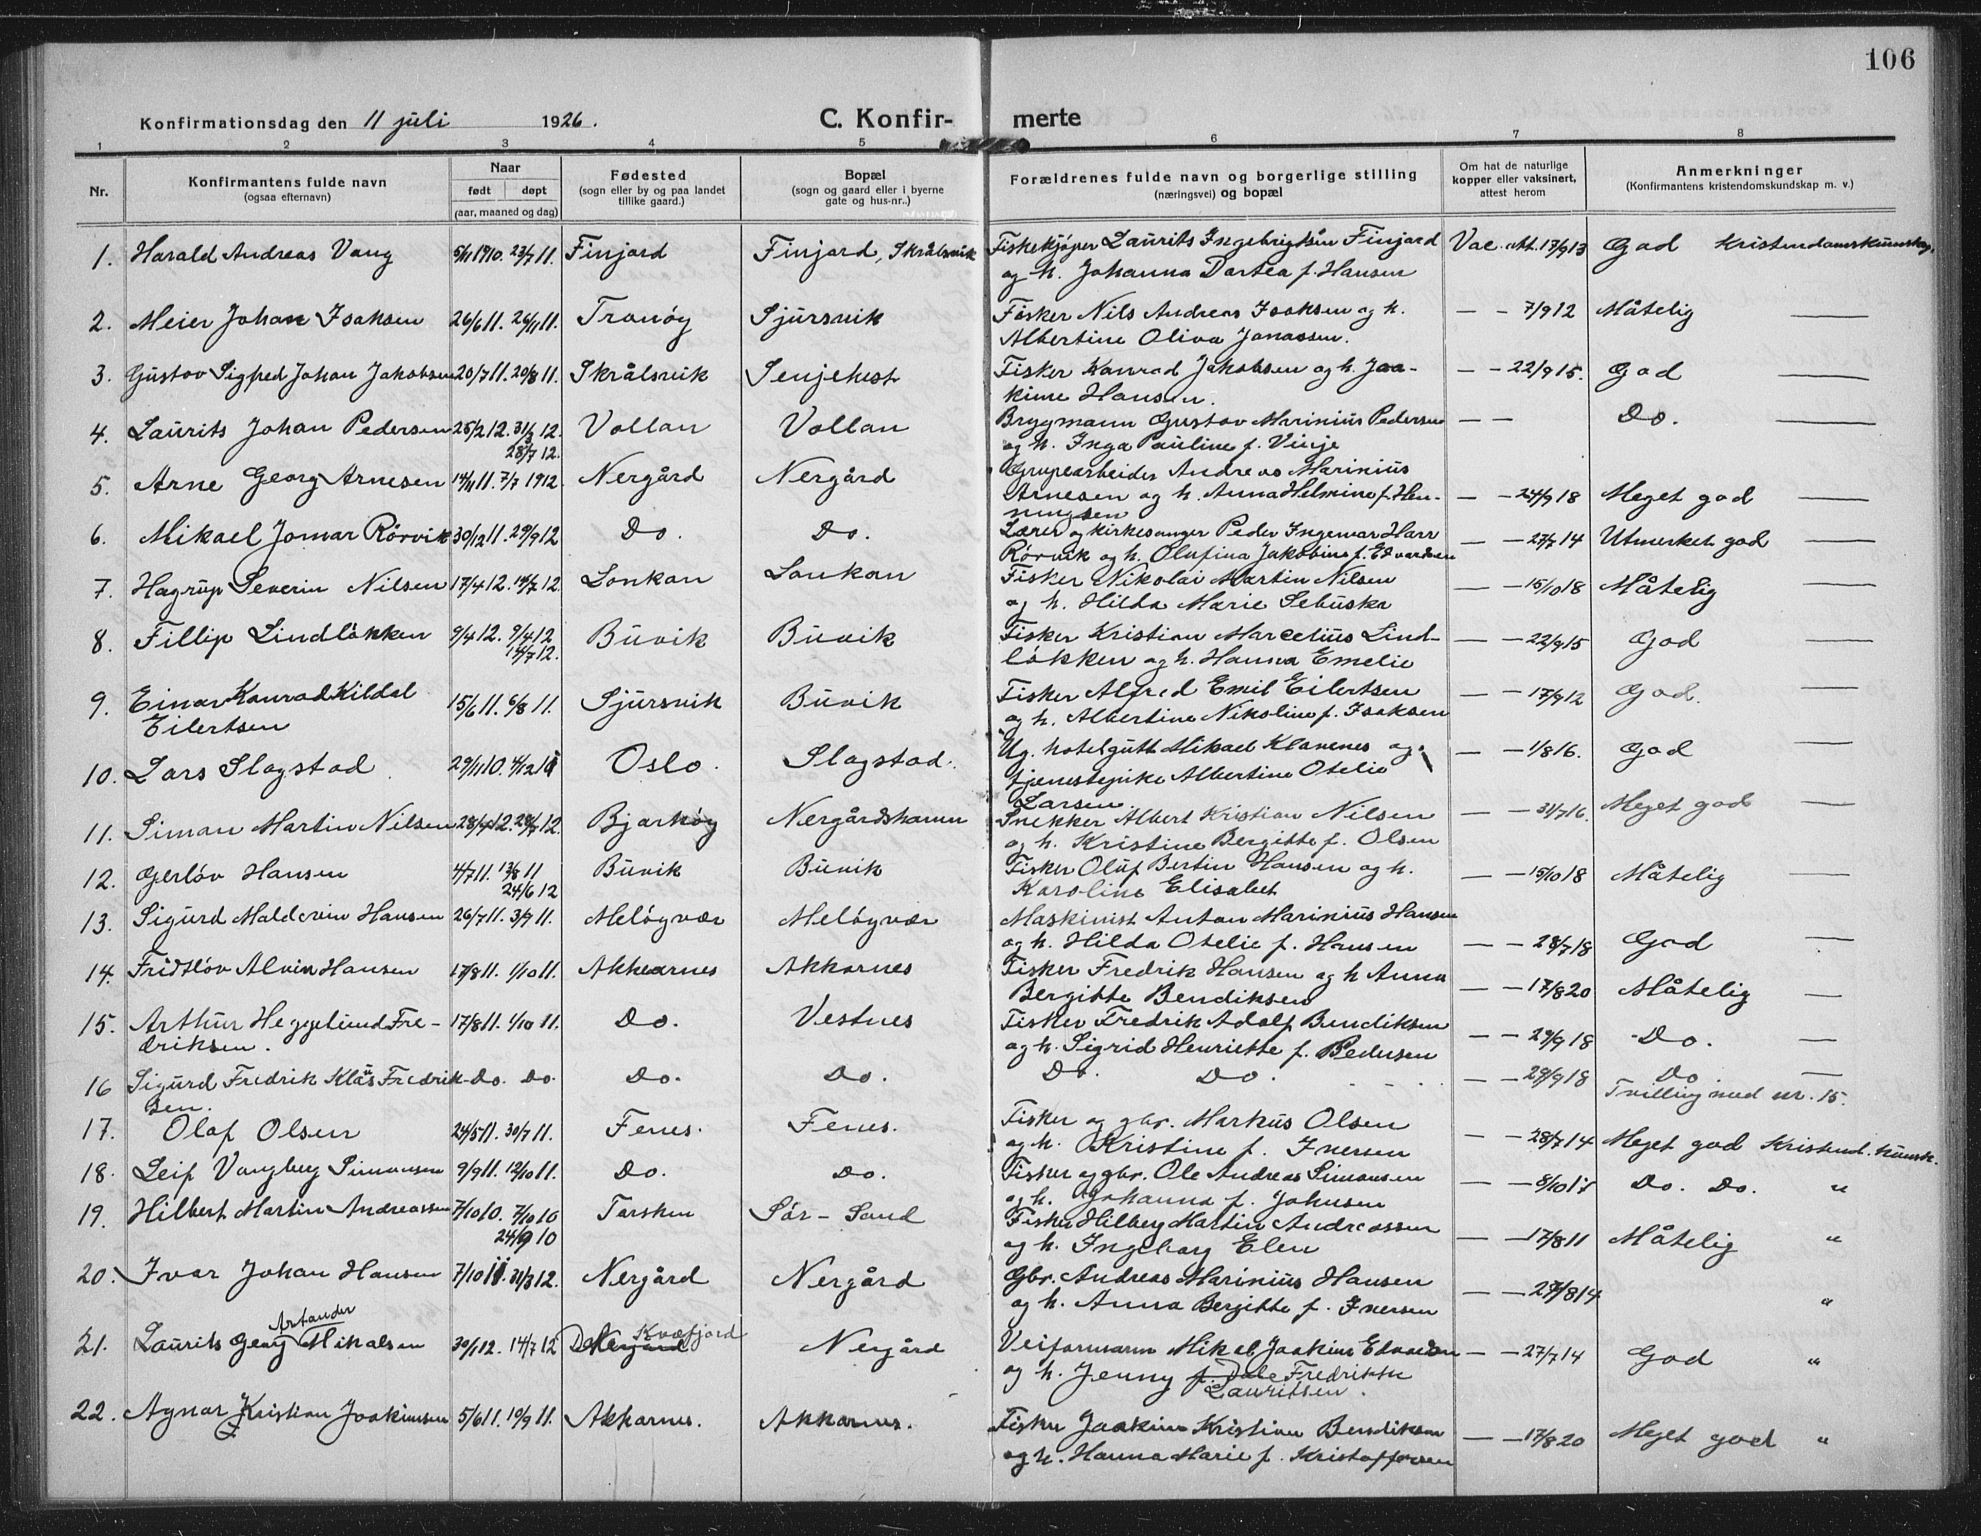 106
Konfirmationsdag den 11 juli 1926.
C. Konfir-
merte
1 2 3 4 5 6 7 8
Nr.
Konfirmantens fulde navn
(ogsaa efternavn)
Naar
født døpt
(aar, maaned og dag)
Fødested
(sogn eller by og paa landet
tillike gaard.)
Bopæl
(sogn og gaard eller i byerne
gate og hus-nr..)
Forældrenes fulde navn og borgerlige stilling
(næringsvei) og bopæl
Om hat de naturlige
kopper eller vaksinert,
attest herom
Anmerkninger
(Konfirmantens kristendomskundskap m. v.)
1. Harald Andreas Vang 5/11 1910. 23/7 11. Finjord Finjord, Skrålsvik Fiskekjøper Laurits Ingebrigtsån Finjord Vac. att. 17/9 13 God Kristendomskunnskap.
og h. Johanna Dortea f. Hansen
2. Meier Johan Isaksen 26/6 11. 26/11 11. Tranöy Sjursvik Fisker Nils Andreas Isaksen og h. — - 7/9 12 Måtelig —
Albertine Oliva Jonassen.
3. Gustav Sigfred Johan Jakobsen 20/7 11. 20/8 11. Skrålsvik Senjehest Fisker Konrad Jakobsen og h. Joa- — - 22/9 15. God —
kime Hansen.
4. Laurits Johan Pedersen 25/2 12. 31/3 12. Vollan Vollan Brygmann Gustav Marinius Pedersen — — Do. —
28/7 12. og h. Inga Pauline f. Vinje
5. Arne Georg Arnesen 14/11 11. 7/7 1912 Nergård Nergård Grupearbeider Andreas Marinius
Arnesen og h. Anna Helmine f. Hen- — - 24/9 18 Meget god —
ningsen
6. Mikael Jomar Rörvik 30/12 11. 29/9 12 Do. Do. Lærer og kirkesanger Peder Ingemar Harr — - 27/7 14 Utmerket god —
Rörvik og h. Olufina Jakobine f. Edvardsen
7. Hagrup Severin Nilsen 17/4 12. 14/7 12. Lonkan Lonkan Fisker Nikolai Martin Nilsen — - 15/10 18 Måtelig —
og h. Hilda Marie Sebuska
8. Fillip Lindlökken 9/4 12. 9/4 12 Buvik Buvik Fisker Kristian Marcelius Lind- — - 22/9 15 God —
14/7 12. lökken og h. Hanna Emelie
9. Einar Konrad Kildal 15/6 11. 6/8 11. Sjursvik Buvik Fisker Alfred Emil Eilertsen — - 17/9 12 God. —
Eilertsen og h. Albertine Nikoline f. Isaksen
10. Lars Slagstad 29/11 10. 4/12 10 Oslo. Slagstad. Ug. hotelgutt Mikael Klavenes og — - 1/8 16. God —
tjenestepike Albertine Otelie
Larsen
11. Simon Martin Nilsen 28/4 12. 28/7 12. Bjarköy Nergårdshamn Snekker Albert Kristian Nilsen — - 31/7 16. Meget god —
og h. Kristine Bergitte f. Olsen
12. Gerlöv Hansen 4/7 11. 13/8 11 Buvik Buvik Fisker Oluf Bertin Hansen og h. — - 15/10 18 Måtelig —
24/6 12 Karoline Elisabet
13. Sigurd Maldevin Hansen 26/7 11. 3/9 11. Melöyvær Melöyvær Maskinist Anton Marinius Hansen
og h. Hilda Otelie f. Hansen — - 28/7 18 God —
14. Fridtlöv Alvin Hansen 17/8 11. 1/10 11. Akkarnes Akkarnes Fisker Fredrik Hansen og h Anna
Bergitte Bendiksen — - 17/8 20 Måtelig —
15. Arthur Heggelund Fre- 17/8 11. 1/10 11. Do. Vestnes Fisker Fredrik Adolf Bendiksen
driksen. og h. Sigrid Henriette f. Pedersen — - 29/9 18 Do. —
16 Sigurd Fredrik Klaus Fredrik- Do. Do. Do. Do. Do. Do. — - 29/9 18 Do —
sen. Tvilling med nr. 15.
17. Olaf Olsen 24/5 11. 30/7 11. Fenes. Fenes. Fisker og gbr. Markus Olsen
og h. Kristine f. Iversen — - 28/7 14 Meget god Kristend. kunnsk.
18. Leif Vangberg Simonsen 9/9 11. 12/10 11. Do. Do. Fisker og gbr. Ole Andreas Simonsen
og h. Johanna f. Johnsen — - 8/10 17 Do. Do. "
19. Hilbert Martin Andreassen 7/10 10. 7/10 10 Torsken Sör-Sand Fisker Hilberg Martin Andreassen
24/9 10 og h. Ingeborg Elen — - 17/8 11 Måtelig "
20. Ivar Johan Hansen 7/10 11. 31/3 12. Nergård Nergård Gbr. Andreas Marinius Hansen
og h. Anna Bergitte f. Iversen — - 27/8 14 "
21. Laurits Georg Mikalsen 30/1 12. 14/7 12 Nergård Kvæfjord Nergård Veiformann Mikal Joakim Edvardsen — - 27/7 14 God "
og h. Jenny f. Dale Fredrikke
Lauritsen.
22. Agnar Kristian Joakimsen 5/6 11. 10/9 11. Akkarnes. Akkarnes. Fisker Joakim Kristian Bendiksen
og h. Hanna Marie f. Kristoffersen — - 17/8 20 Meget god "